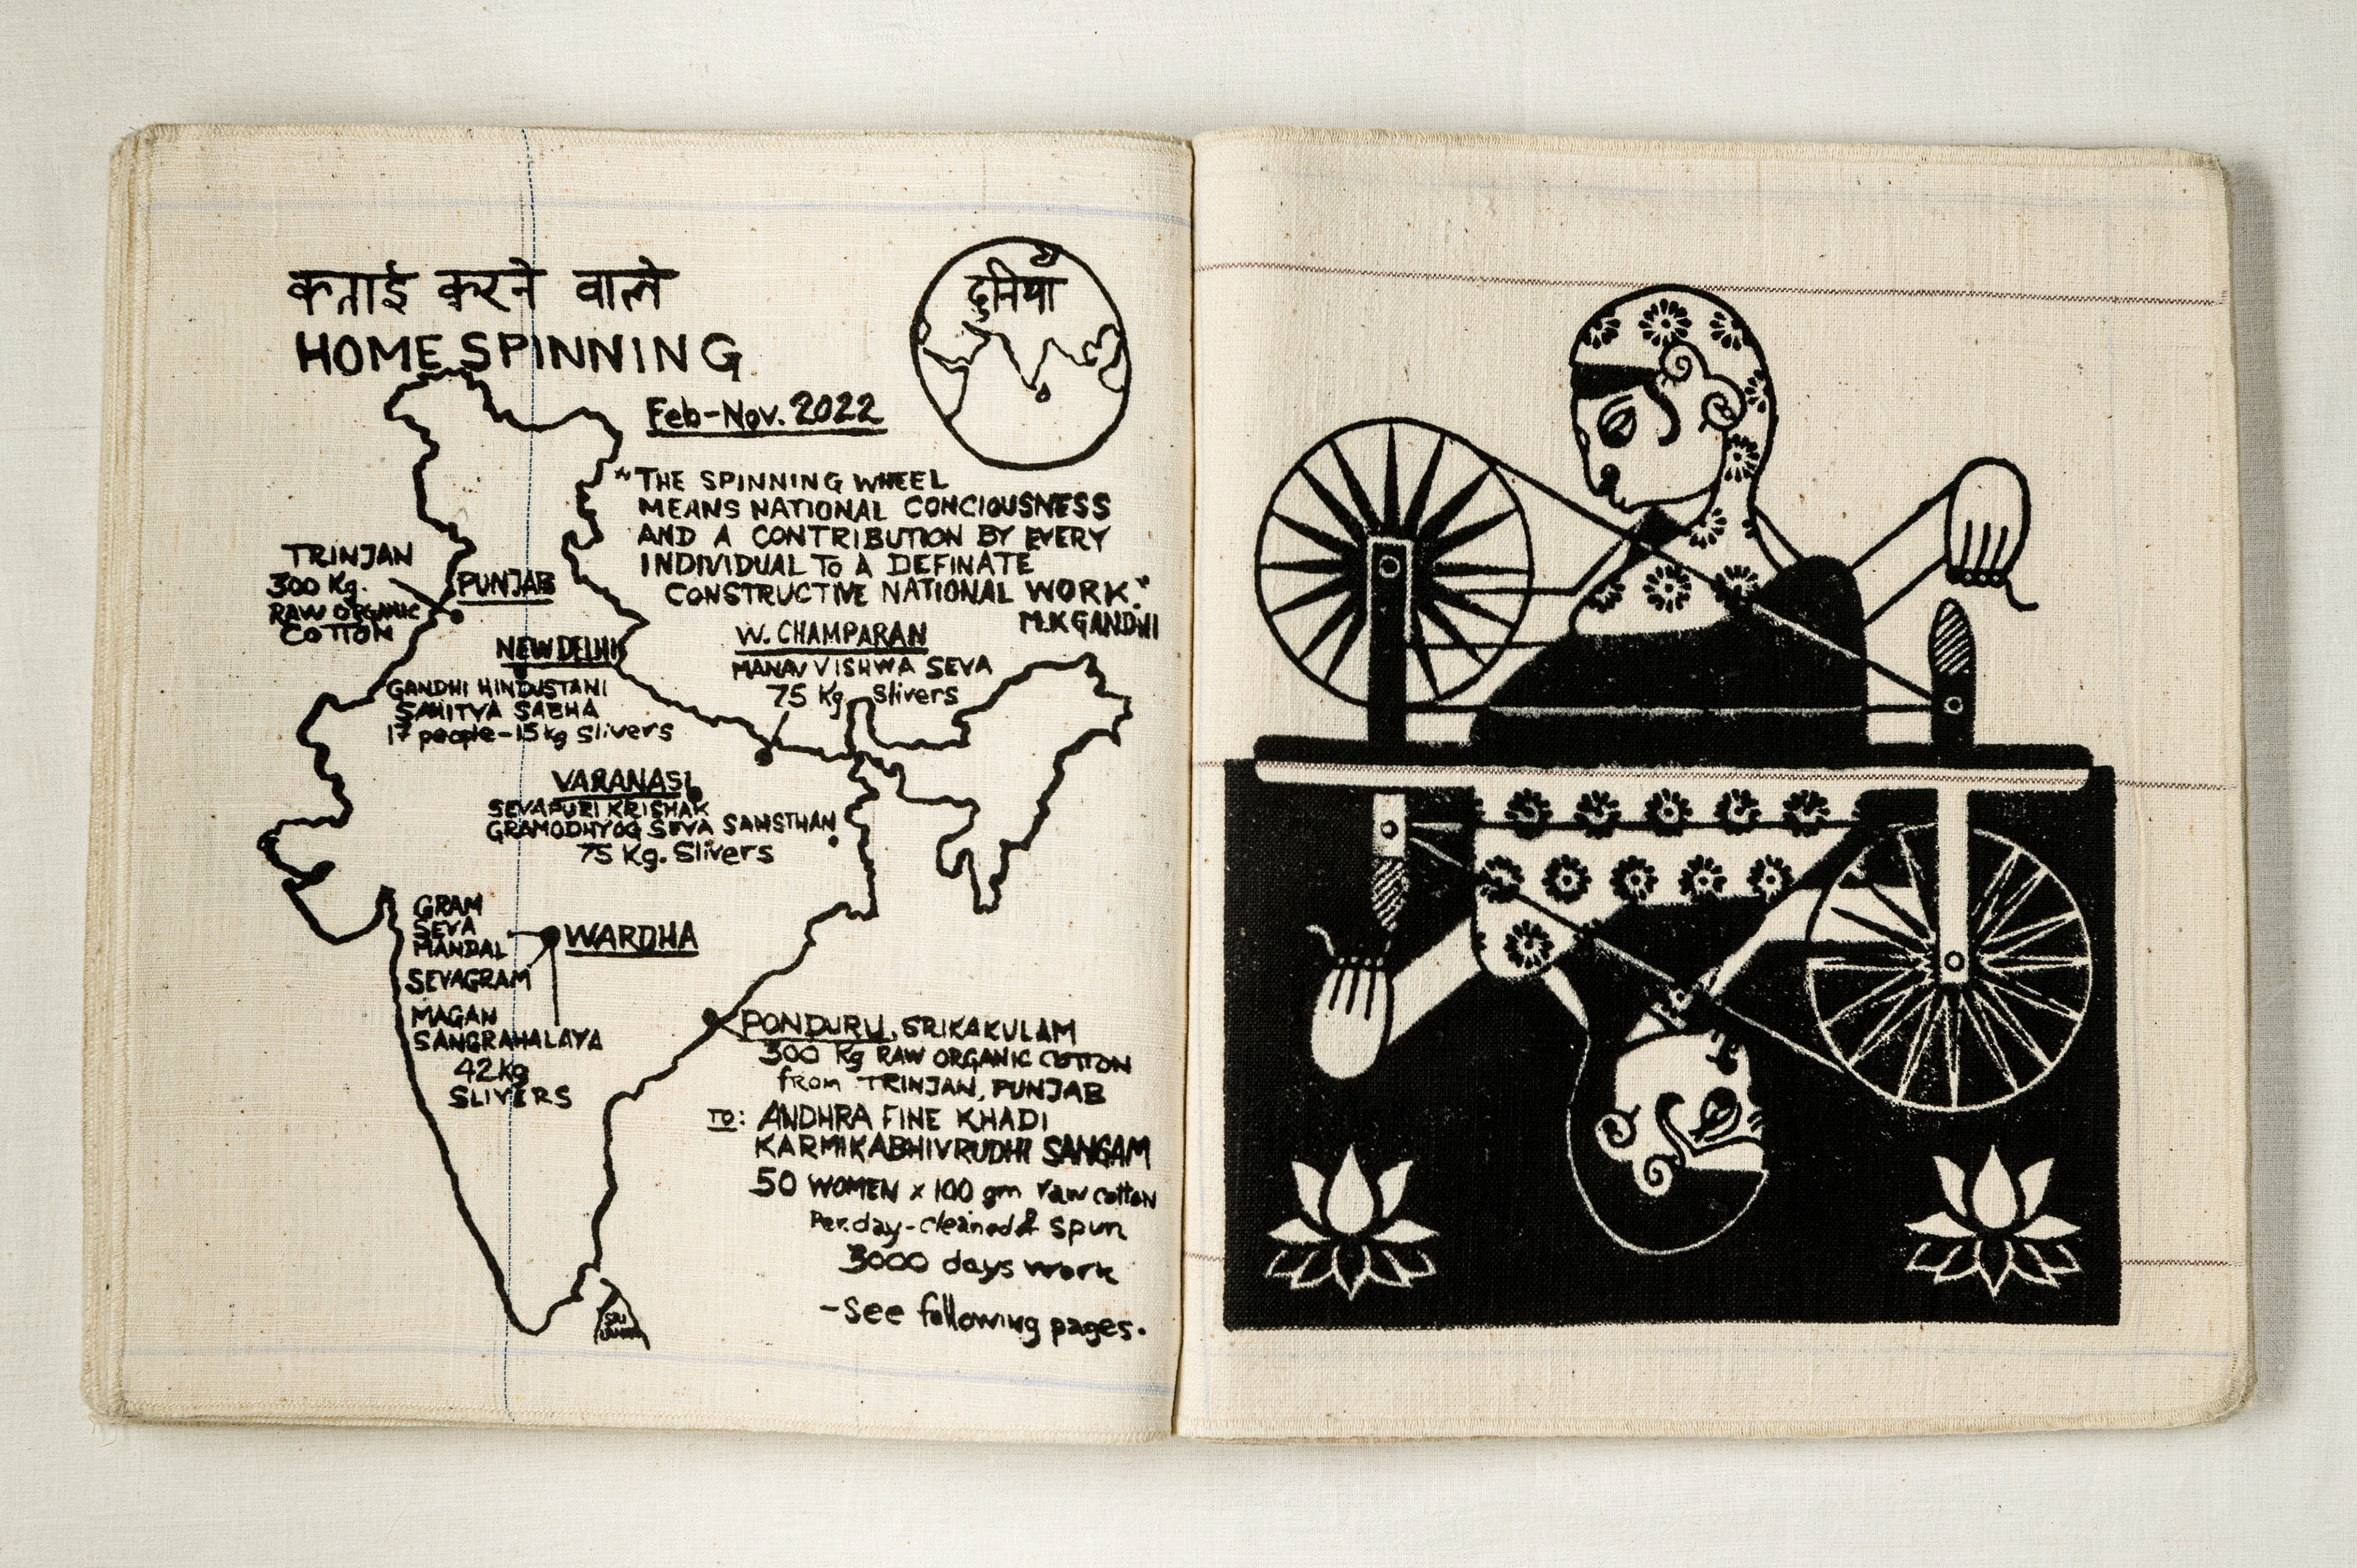 कताई करने वाले
HOME SPINNING
दुनिया
Feb-Nov. 2022
"THE SPINNING WHEEL
MEANS NATIONAL CONCIOUSNESS
AND A CONTRIBUTION BY EVERY
INDIVIDUAL TO A DEFINATE
CONSTRUCTIVE NATIONAL WORK."
M.K GANDHI
TRINJAN
300 Kg.
RAW ORGANIC
COTTON
PUNJAB
NEW DELHI
GANDHI HINDUSTANI
SAHITYA SABHA
17 people-15kg Slivers
W. CHAMPARAN
MANAV VISHWA SEVA
75 Kg Slivers
VARANASI
SEVAPURI KRISHAK
GRAMODHYOG SEVA SANSTHAN
75 Kg. Slivers
GRAM
SEVA
MANDAL
SEVAGRAM
MAGAN
SANGRAHALAYA
42kg
SLIVERS
WARDHA
PONDURU, SRIKAKULAM
300 Kg RAW ORGANIC COTTON
from TRINJAN, PUNJAB
TO: ANDHRA FINE KHADI
KARMIKABHIVRUDHI SANGAM
50 WOMEN x 100 gm raw cotton
Per.day-cleaned & spun
3000 days work
-See following pages.
SRI
LANKA